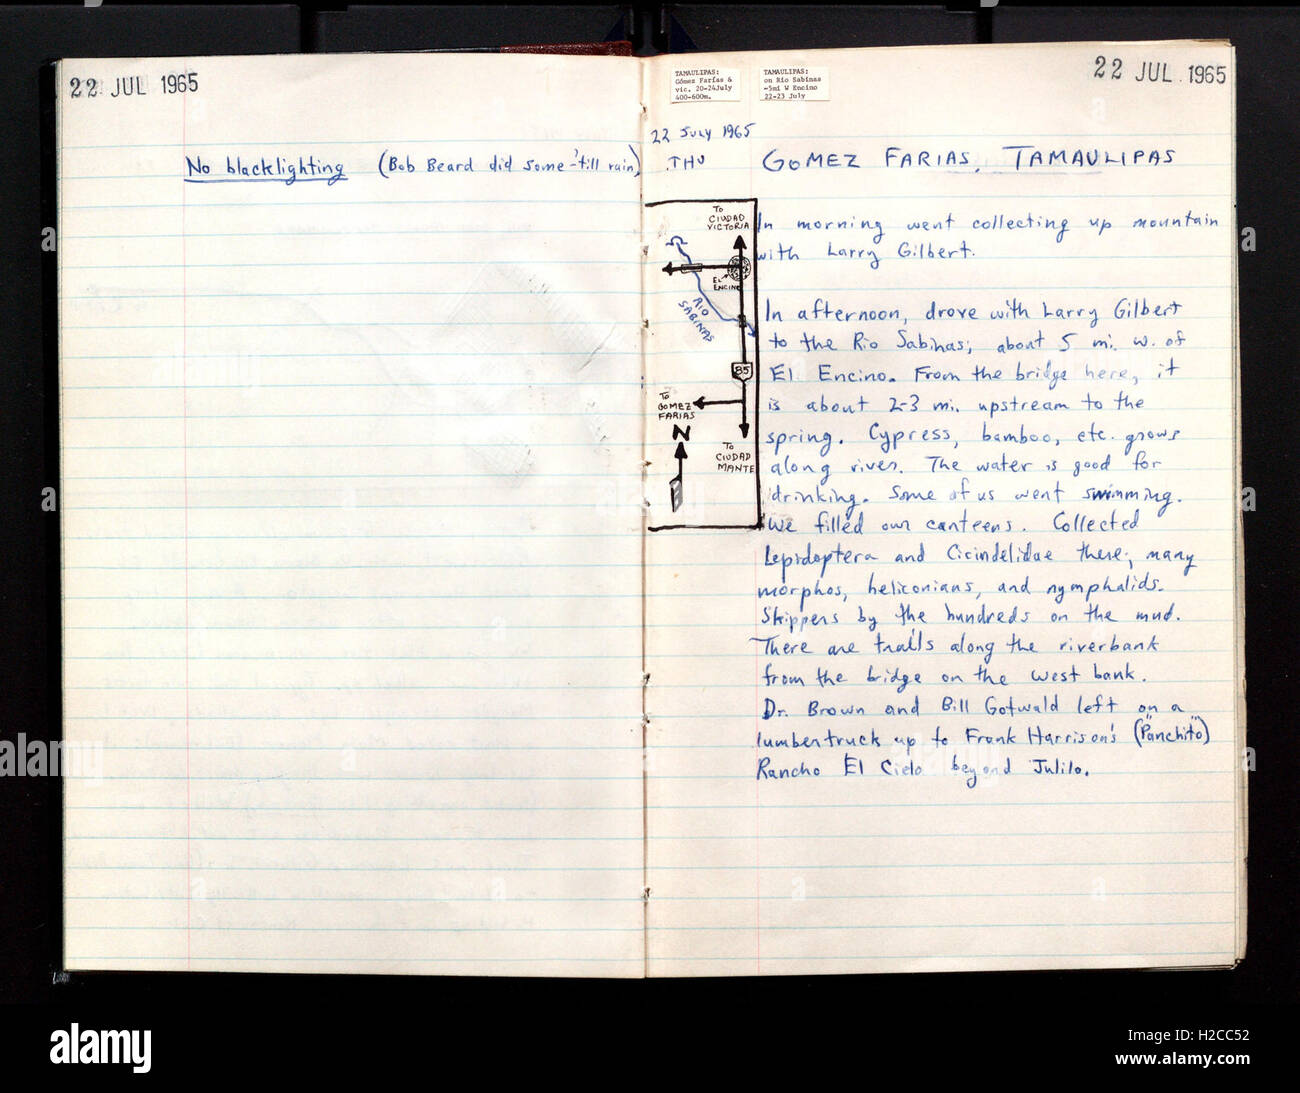 22 JUL 1965
No blacklighting (Bob Beard did some 'till rain)
22 JUL 1965
TAMAULIPAS:
Gómez Farías &
vic. 20-24July
400-600m.
TAMAULIPAS:
on Rio Sabinas
~5mi W Encino
22-23 July
22 July 1965
THU
GOMEZ FARIAS, TAMAULIPAS
In morning went collecting up mountain
with Larry Gilbert.
In afternoon, drove with Larry Gilbert
to the Rio Sabinas; about 5 mi. w. of
El Encino. From the bridge here, it
is about 2-3 mi. upstream to the
spring. Cypress, bamboo, etc. grows
along river. The water is good for
drinking. Some of us went swimming.
We filled our canteens. Collected
Lepidoptera and Cicindelidae there; many
morphos, heliconians, and nymphalids.
Skippers by the hundreds on the mud.
There are trails along the riverbank
from the bridge on the west bank.
Dr. Brown and Bill Gotwald left on a
lumbertruck up to Frank Harrison's ("Panchito")
Rancho El Cielo beyond Julilo.
To
CIUDAD
VICTORIA
EL
ENCINO
RIO
SABINAS
85
To
GOMEZ
FARIAS
N
To
CIUDAD
MANTE
alamy
H2CC52
www.alamy.com